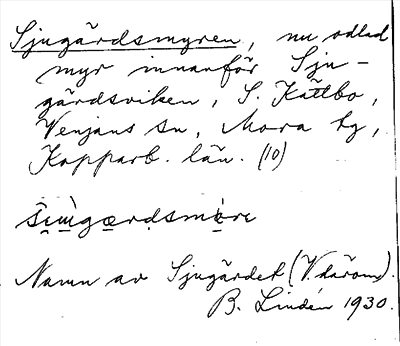 Sjugärdsmyren, nu odlad
myr innanför Sju-
gärdsviken, S. Kättbo,
Venjans sn, Mora tg,
Kopparb. län. (10)
Namn av Sjugärdet (V härom).
B. Lindén 1930.